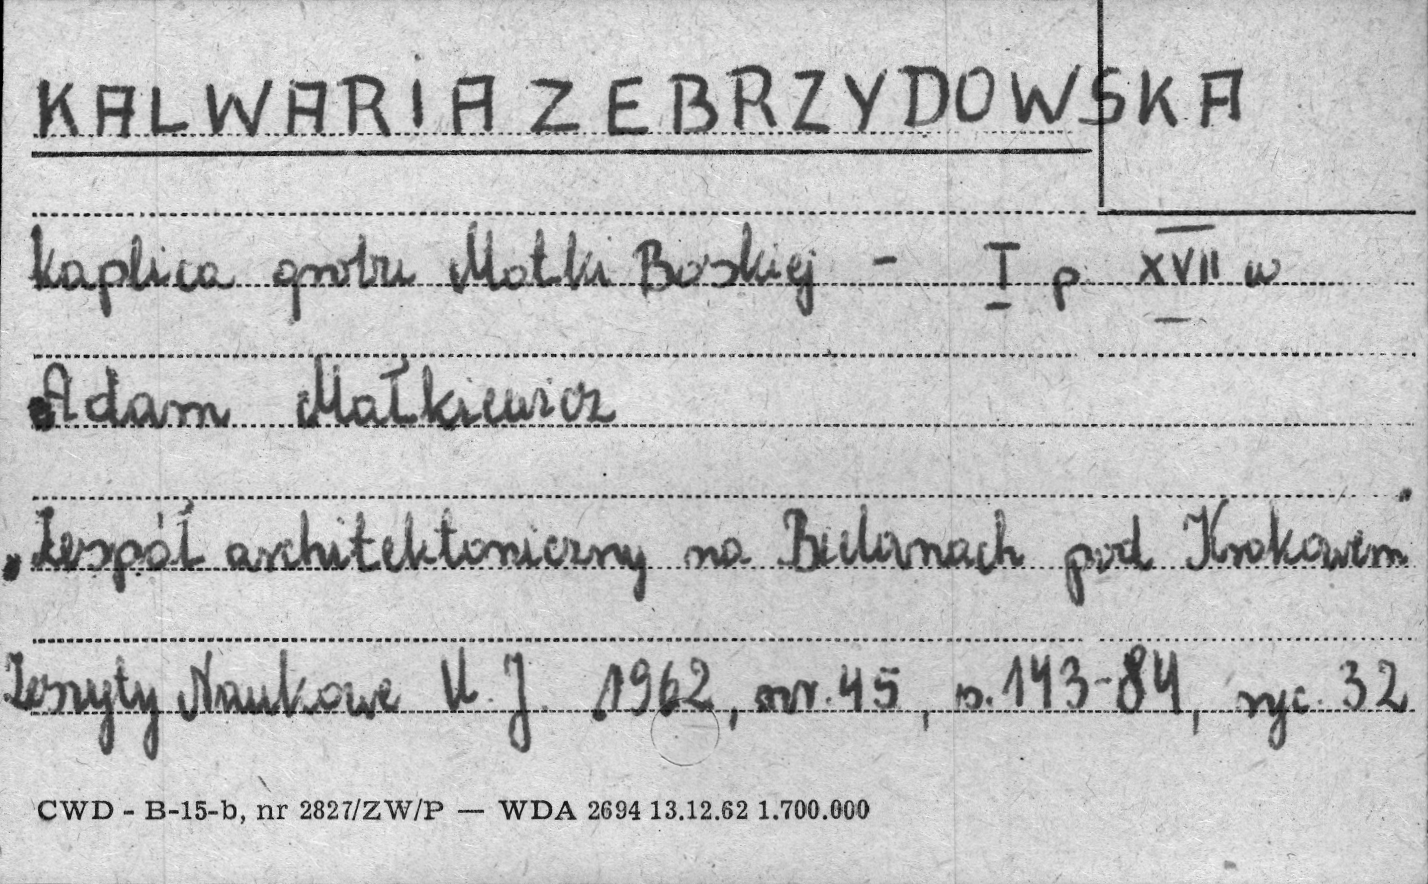 KALWARIA ZEBRZYDOWSKA
kaplica grobu Matki Boskiej - I p. XVII w
Adam Małkiewicz
„Zespół architektoniczny na Bielanach pod Krakowem"
Zeszyty Naukowe U. J. 1962, nr. 45, s. 143-84, ryc. 32
CWD - B-15-b, nr 2827/ZW/P — WDA 2694 13.12.62 1.700.000